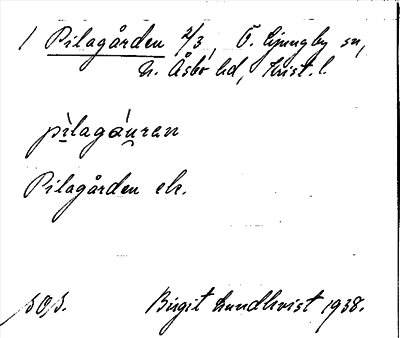 / Pilagården 2/3, Ö. Ljungby sn,
N. Åsbo hd, Krist. l.
pìlagáu̯ran
Pilagården ek.
Birgit Lundkvist 1938.